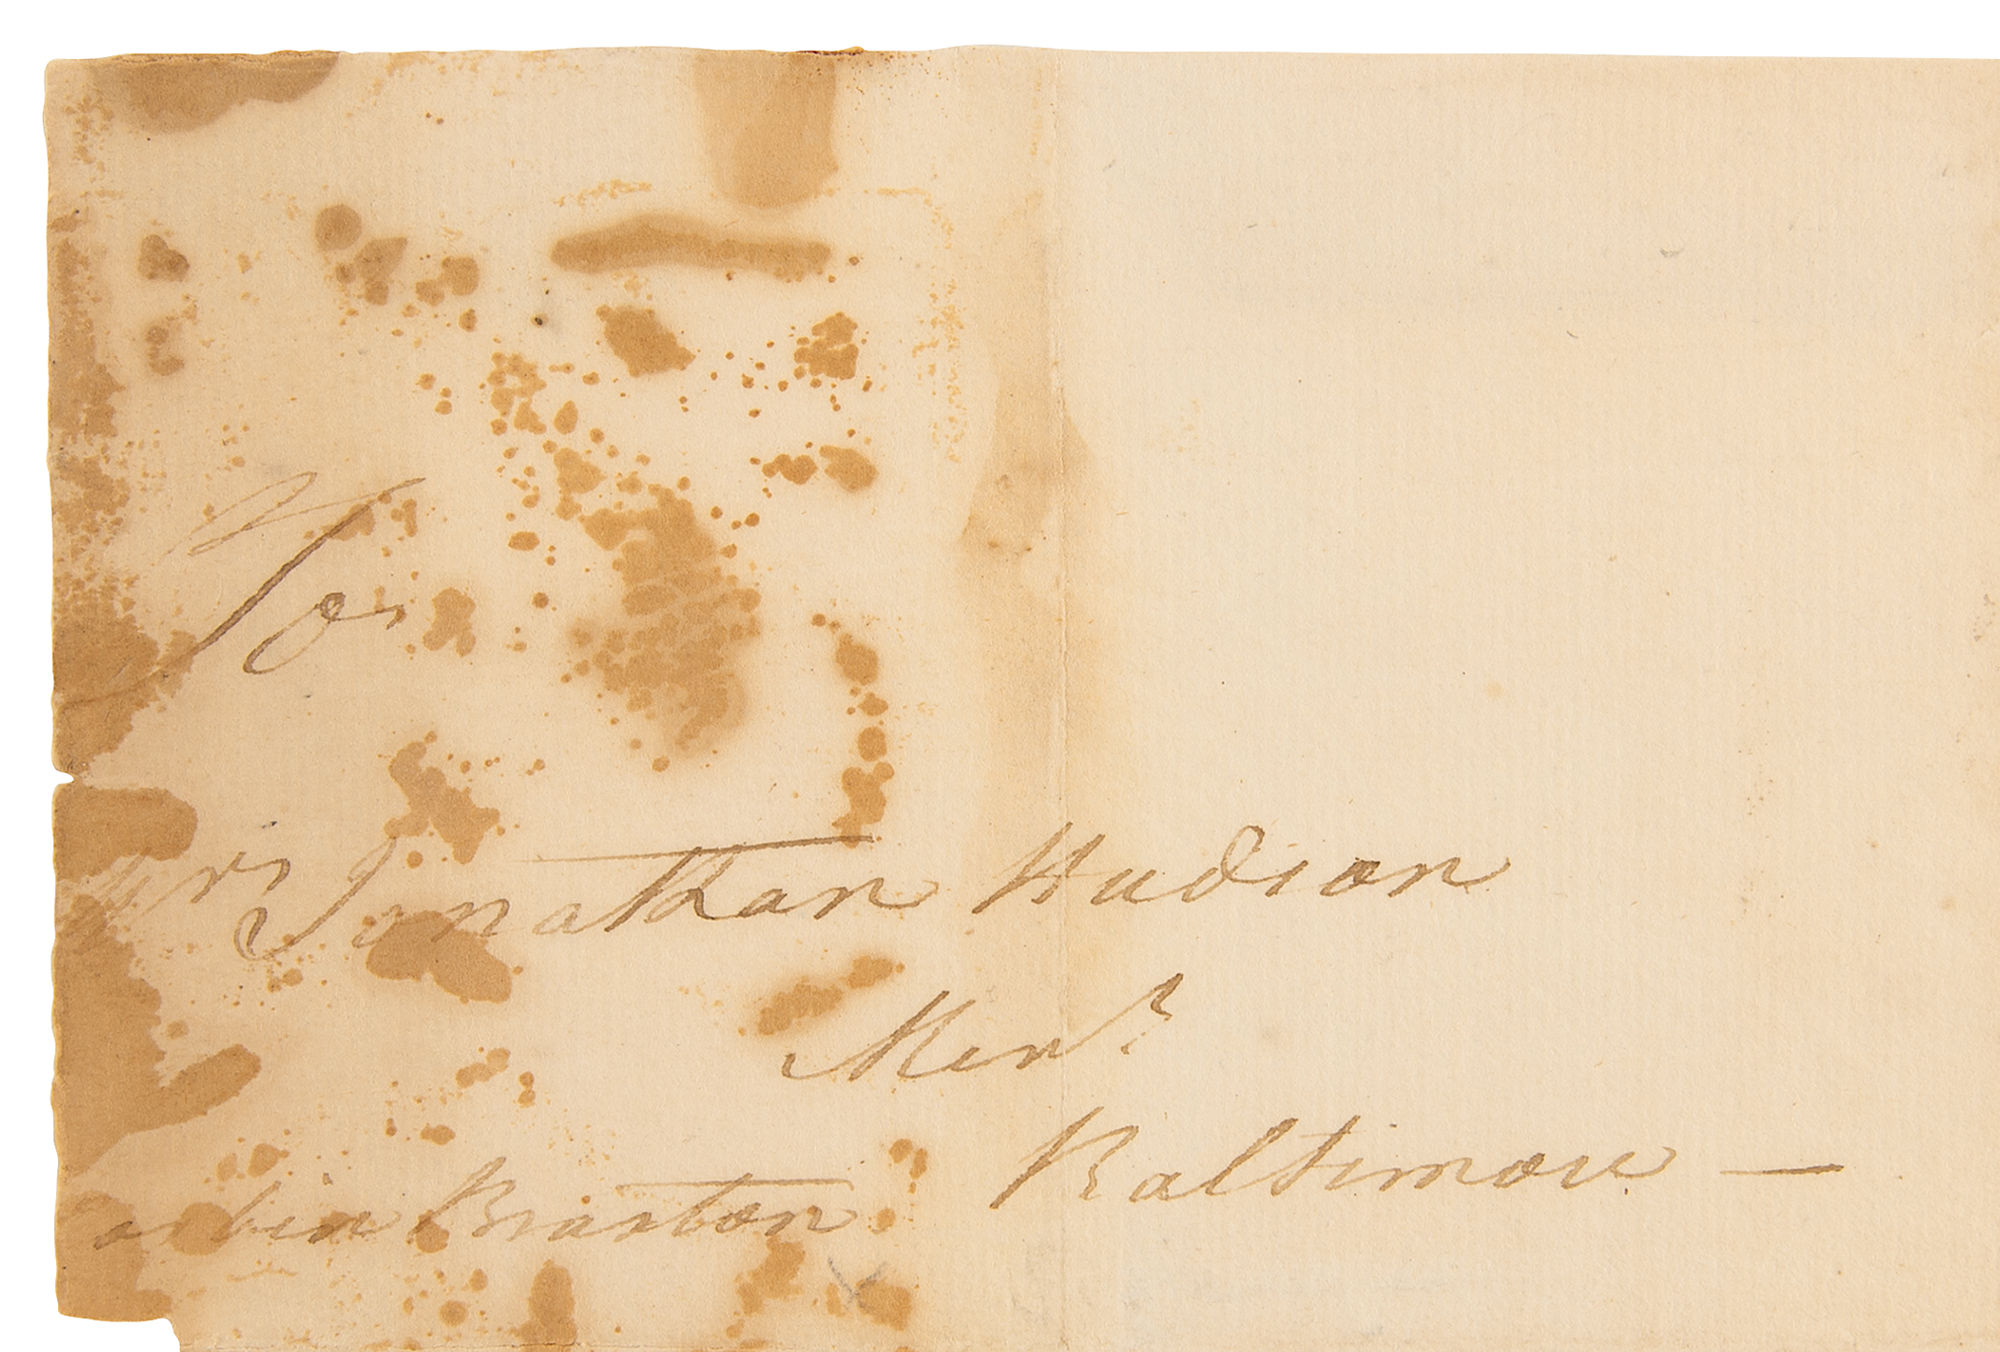 To
Mr Jonathan Hudson
Mer^t
Baltimore —
Carter Braxton